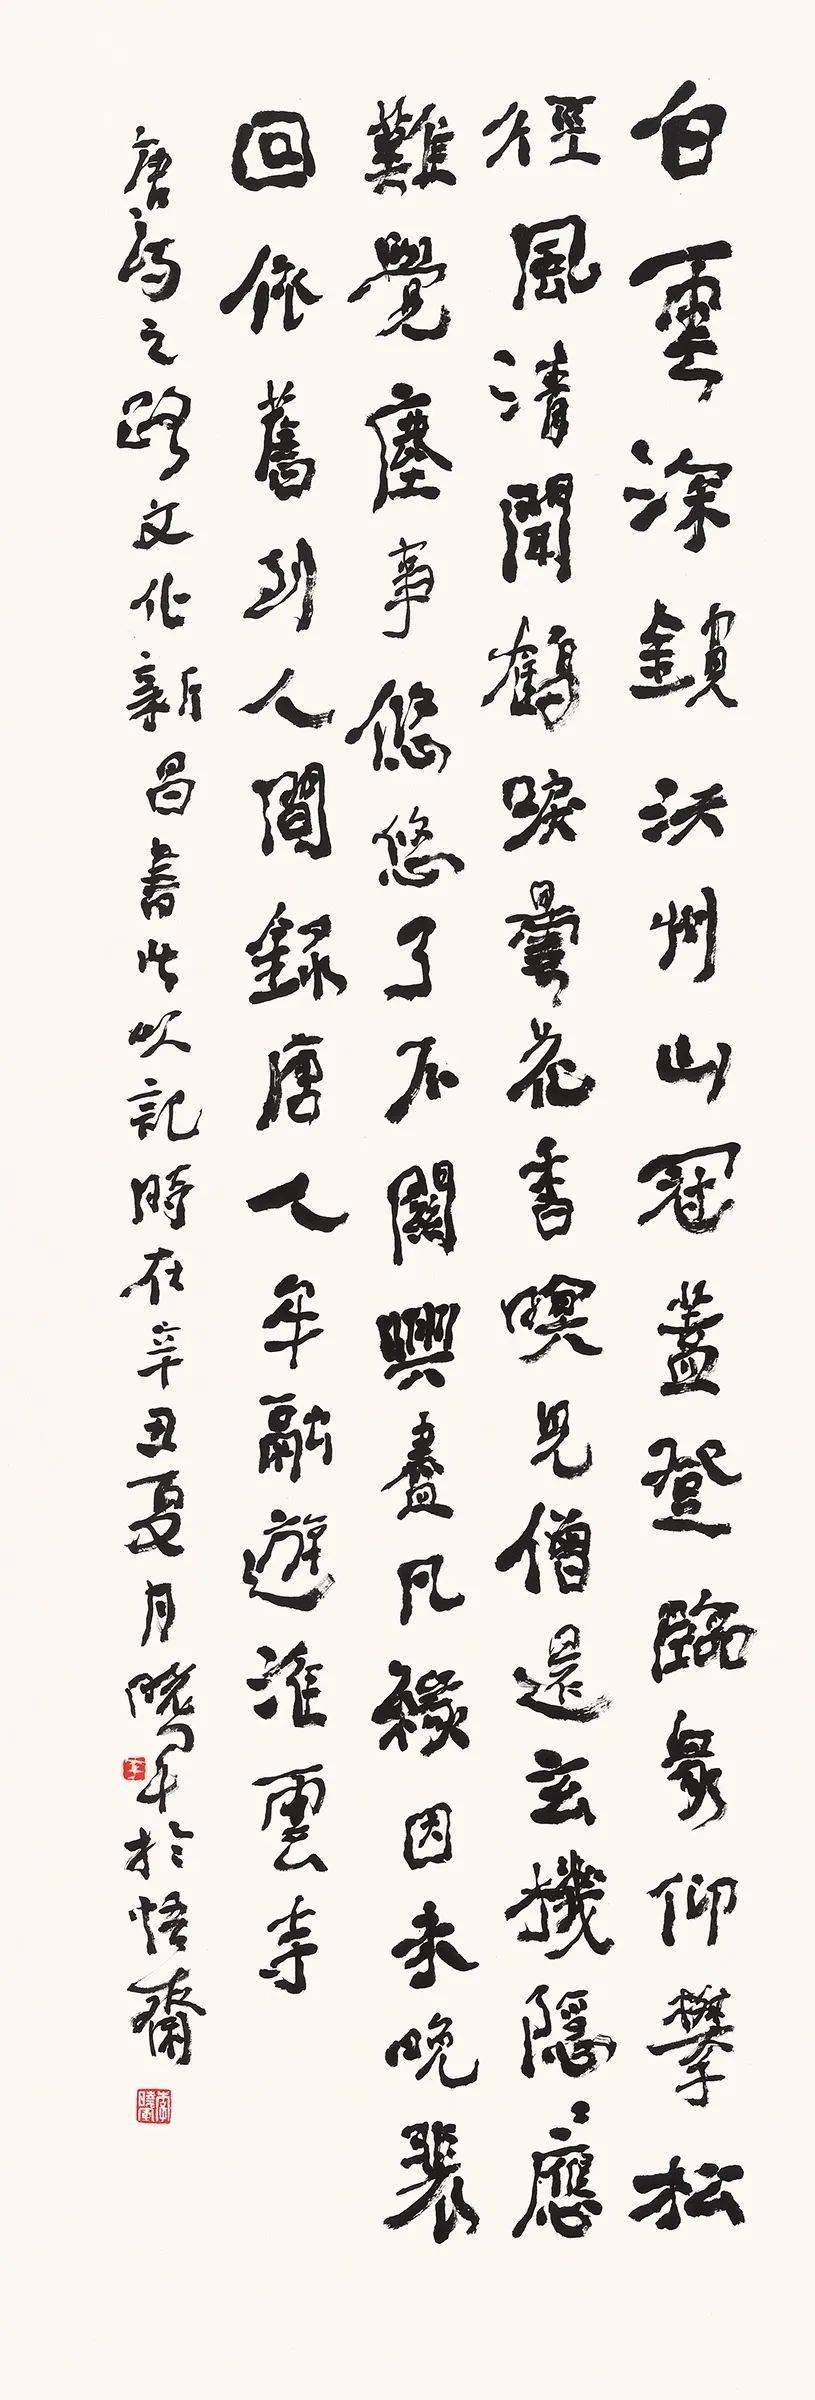 白雲深鎖沃州山冠蓋登臨衆仰攀松
徑風清聞鶴唳曇花香暝見僧還玄機隱應
難覺塵事悠悠了不關興盡凡緣因未晚裴
回依舊到人間錄唐人牟融遊淮雲寺
唐詩之路文化新昌書此以記時在辛丑夏月曉軍於悟齋